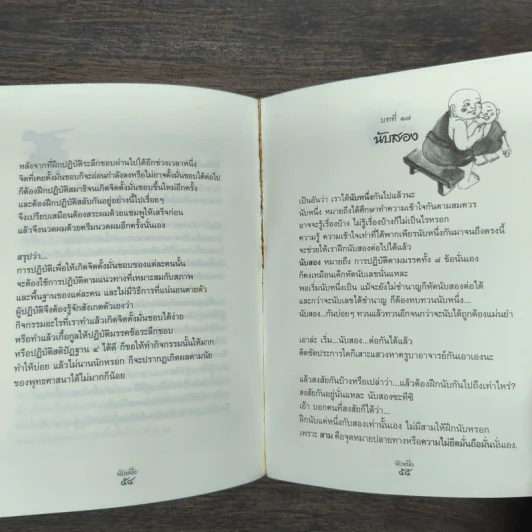 หลังจากที่ฝึกปฏิบัติระลึกชอบผ่านไปได้อีกช่วงเวลาหนึ่ง
จิตที่เคยตั้งมั่นชอบก็จะอ่อนกำลังลงหรือไม่อาจตั้งมั่นชอบได้ต่อไป
ก็ต้องฝึกปฏิบัติสมาธิจนเกิดจิตตั้งมั่นชอบขึ้นใหม่อีกครั้ง
และต้องปฏิบัติสลับกันอยู่อย่างนี้ไปเรื่อยๆ
จึงเปรียบเสมือนต้องสระผมด้วยแชมพูให้เสร็จก่อน
แล้วจึงนวดผมด้วยครีมนวดผมอีกครั้งนั่นเอง
สรุปว่า...
การปฏิบัติเพื่อให้เกิดจิตตั้งมั่นชอบของแต่ละคนนั้น
จะต้องใช้การปฏิบัติตามแนวทางที่เหมาะสมกับสภาพ
และพื้นฐานของแต่ละคน และไม่มีวิธีการที่แน่นอนตายตัว
ผู้ปฏิบัติจึงต้องรู้จักสังเกตตัวเองว่า
กิจกรรมอะไรที่เราทำแล้วเกิดจิตตั้งมั่นชอบได้ง่าย
หรือทำแล้วเกื้อกูลให้ปฏิบัติมรรคข้อระลึกชอบ
หรือปฏิบัติสติปัฏฐาน ๔ ได้ดี ก็ขอให้ทำกิจกรรมนั้นให้มาก
ทำให้บ่อย แล้วไม่นานนักหรอก ก็จะปรากฏเกิดผลตามนัย
ของพุทธศาสนาได้ไม่มากก็น้อย
นับหนึ่ง
๕๔
บทที่ ๑๗
นับสอง
เป็นอันว่า เราได้นับหนึ่งกันไปแล้วนะ
นับหนึ่ง หมายถึงได้ศึกษาทำความเข้าใจกันตามสมควร
อาจจะรู้เรื่องบ้าง ไม่รู้เรื่องบ้างก็ไม่เป็นไรหรอก
ความรู้ ความเข้าใจเท่าที่ได้พากเพียรนับหนึ่งกันมาจนถึงตรงนี้
จะช่วยให้เราฝึกนับสองต่อไปได้แล้ว
นับสอง หมายถึง การปฏิบัติตามมรรคทั้ง ๘ ข้อนั่นเอง
ก็คงเหมือนเด็กหัดนับเลขนั่นแหละ
พอเริ่มนับหนึ่งเป็น แม้จะยังไม่ชำนาญก็หัดนับสองต่อได้
และกว่าจะนับเลขได้ชำนาญ ก็ต้องทบทวนนับหนึ่ง...
นับสอง...กันบ่อยๆ ทวนแล้วทวนอีกจนกว่าจะนับได้ถูกต้องแม่นยำ
เอาล่ะ เริ่ม...นับสอง...ต่อกันได้แล้ว
ติดขัดประการใดก็เสาะแสวงหาครูบาอาจารย์กันเอาเองนะ
แล้วสงสัยกันบ้างหรือเปล่าว่า...แล้วต้องฝึกนับกันไปถึงเท่าไหร่?
สงสัยกันอยู่นั่นแหละ นับสองซะทีซิ
เอ้า บอกคนที่สงสัยก็ได้ว่า...
ฝึกนับแค่หนึ่งกับสองเท่านั้นเอง ไม่มีสามให้ฝึกนับหรอก
เพราะ สาม คือจุดหมายปลายทางหรือความไม่ยึดมั่นถือมั่นนั่นเอง
นับหนึ่ง
๕๕